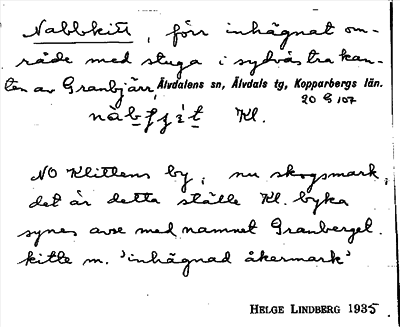 Nabbkitt, förr inhägnat om-
råde med stuga i sydvästra kan-
ten av Granbjärr, Älvdalens sn, Älvdals tg, Kopparbergs län.
20 G 107
Kl.
NO Klittens by; nu skogsmark,
det är detta ställe Kl. byka
synes avse med namnet Granberget.
kitte m. 'inhägnad åkermark'
HELGE LINDBERG 1935.